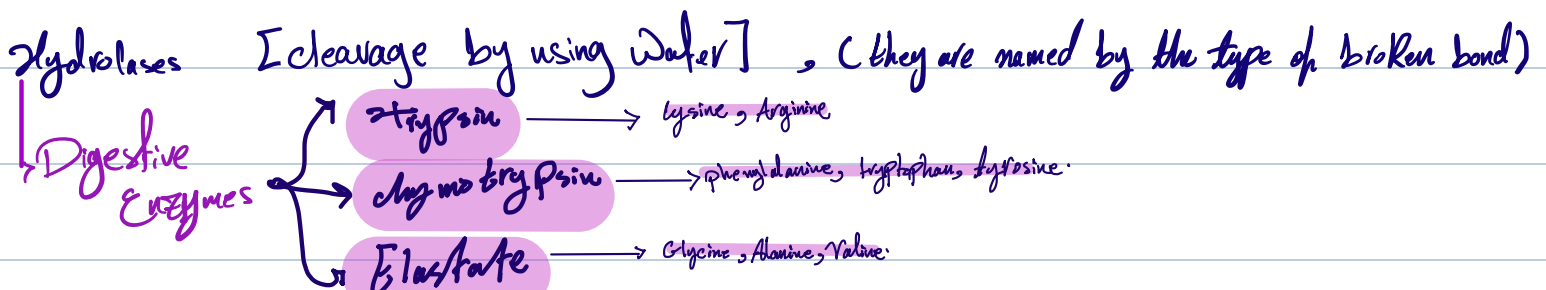 Hydrolases [cleavage by using Water] , (they are named by the type of broken bond)
Digestive Enzymes
Trypsin → lysine, Arginine
chymotrypsin → phenylalanine, tryptophan, tyrosine.
Elastate → Glycine, Alanine, Valine.